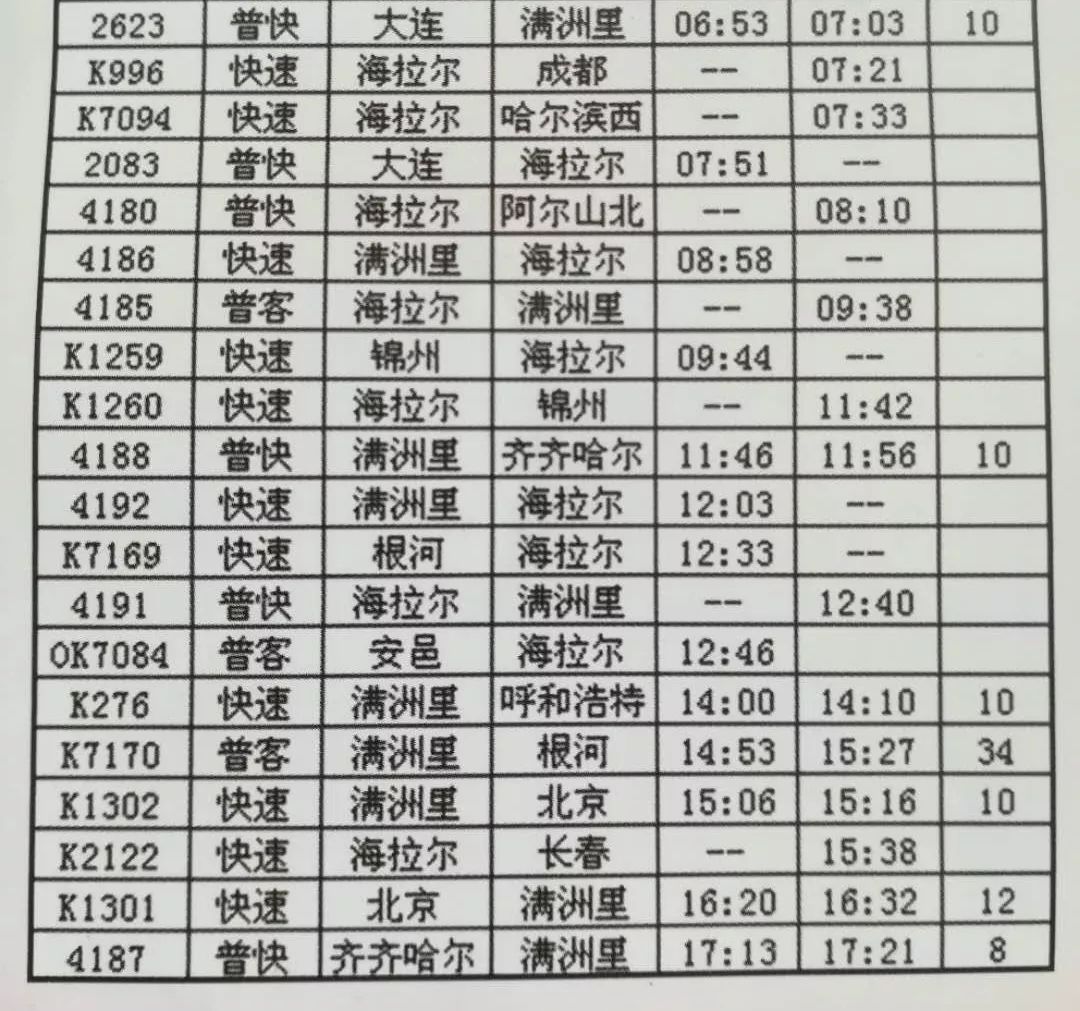 2623 普快 大连 满洲里 06:53 07:03 10
K996 快速 海拉尔 成都 -- 07:21
K7094 快速 海拉尔 哈尔滨西 -- 07:33
2083 普快 大连 海拉尔 07:51 --
4180 普快 海拉尔 阿尔山北 -- 08:10
4186 快速 满洲里 海拉尔 08:58 --
4185 普客 海拉尔 满洲里 -- 09:38
K1259 快速 锦州 海拉尔 09:44 --
K1260 快速 海拉尔 锦州 -- 11:42
4188 普快 满洲里 齐齐哈尔 11:46 11:56 10
4192 快速 满洲里 海拉尔 12:03 --
K7169 快速 根河 海拉尔 12:33 --
4191 普快 海拉尔 满洲里 -- 12:40
OK7084 普客 安邑 海拉尔 12:46
K276 快速 满洲里 呼和浩特 14:00 14:10 10
K7170 普客 满洲里 根河 14:53 15:27 34
K1302 快速 满洲里 北京 15:06 15:16 10
K2122 快速 海拉尔 长春 -- 15:38
K1301 快速 北京 满洲里 16:20 16:32 12
4187 普快 齐齐哈尔 满洲里 17:13 17:21 8